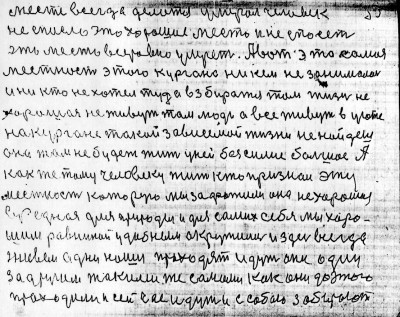 месте всегда делотся умирал человек 39
не спасло это хорошие месть и не спосет
эть месть всеровно умрет. А вот это самая
местность этого кургана ни кем не занималас
и ни кто не хотел туда взбиратся там жизн не
хорошая не живут там людь а все живут в
на кургане такой зависемой жизни не найдеш
она там не будет жит у ней бессилие болшое А
как же тому человеку жит кто признал эту
местност которую мы захотили она не хорошая
вредная для природы и для самих себя мы хоро-
шим равниной удобнем окружили и здес всегда
живем а дни наши проходят идут они один
за другим такими же самами как они до этого
проходили и сейчас идут и с собою забирают